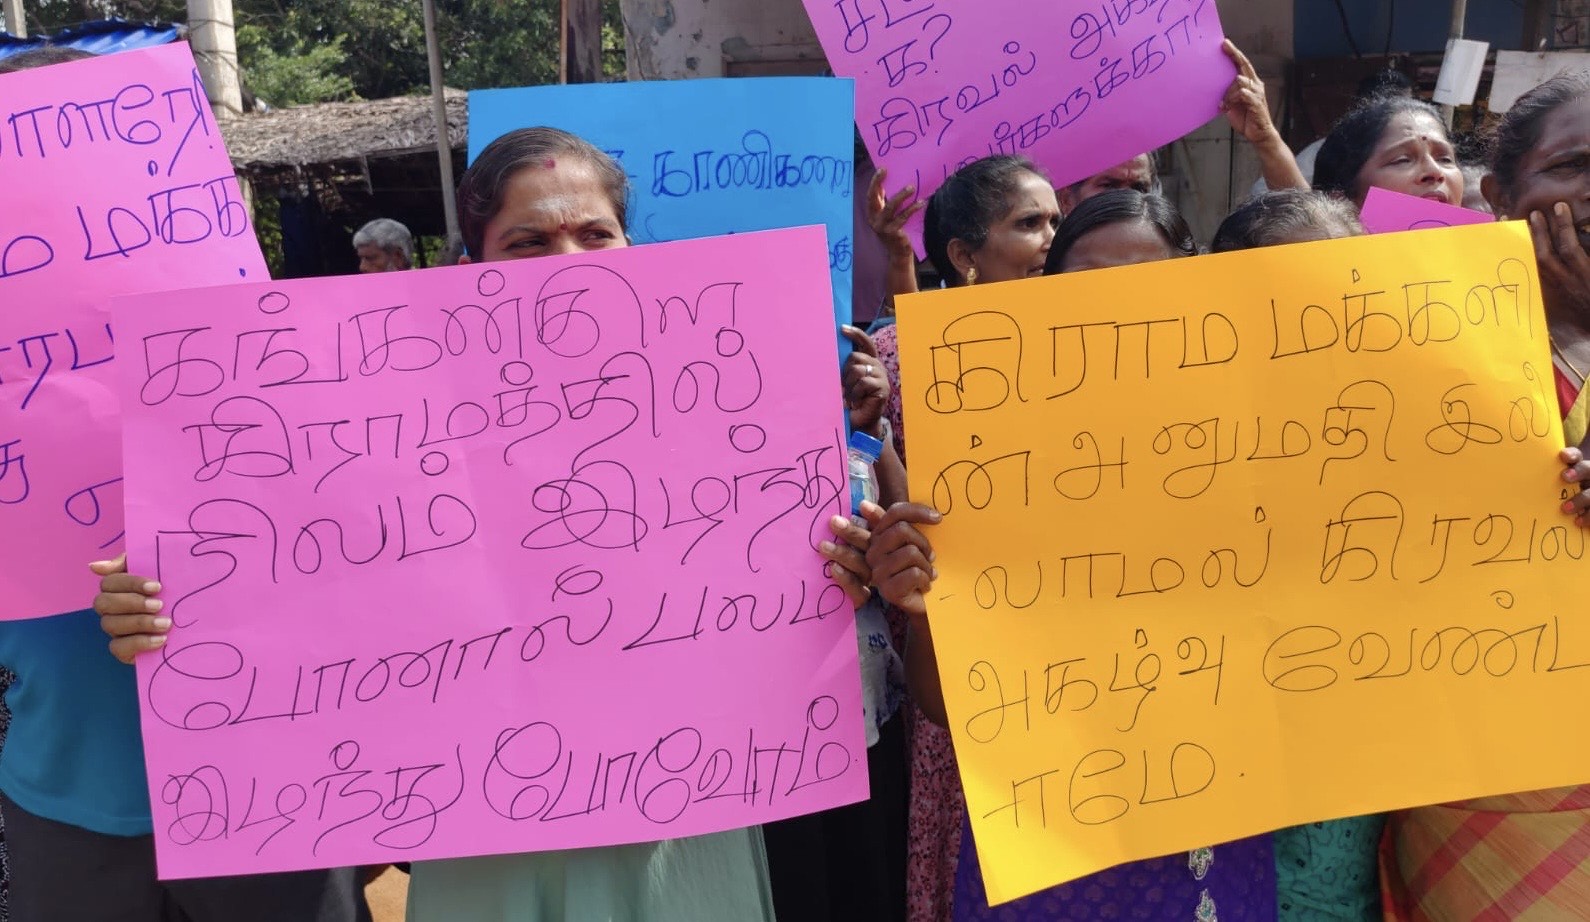 ாளரே!
மக்க
காணிக
க?
கிரவல் அக
கங்கன்கிறு
கிராமத்தில்
நிலம் இடிந்து
போனால் பலம்
இடிந்து போவோம்.
கிராம மக்களி
ன் அனுமதி இல்
-லாமல் கிரவல்
அகழ்வு வேண்ட
ாமே.